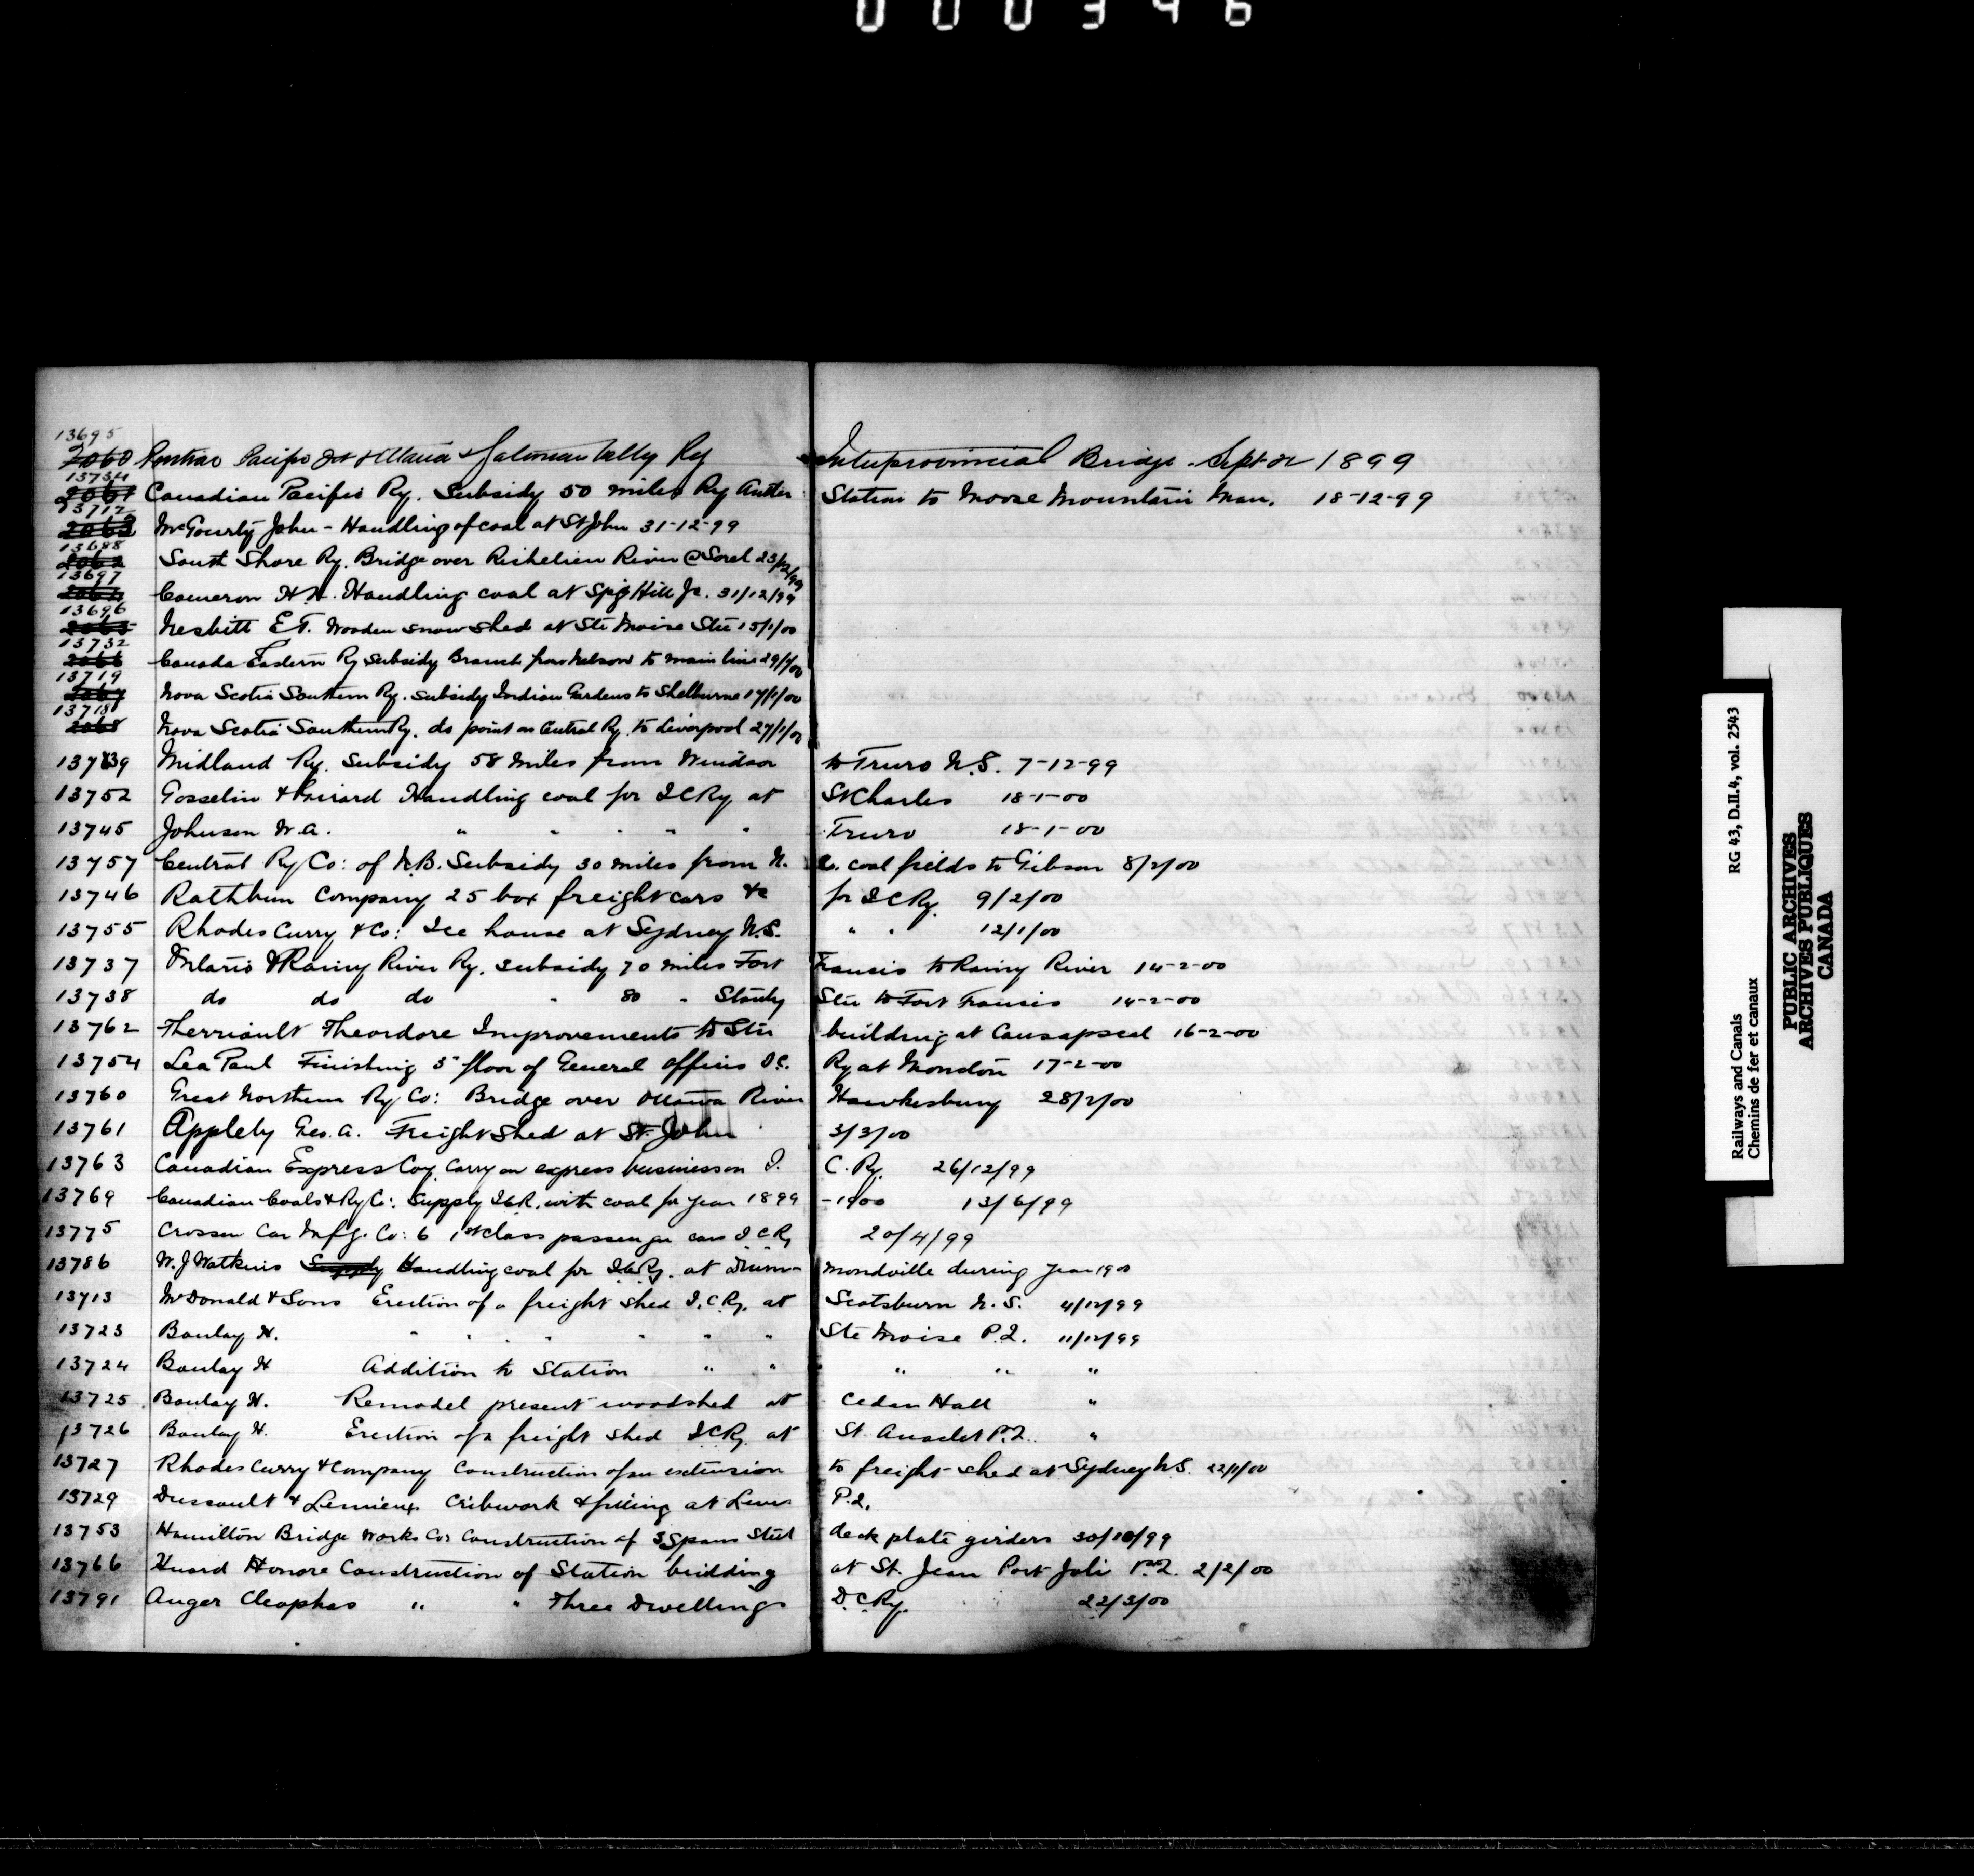 000346
13695
2060 Pontiac Pacific Jct & Ottawa & Gatineau Valley Ry Interprovincial Bridge. Sept 1899
13734
2061 Canadian Pacific Ry. Subsidy 50 miles Ry Antler Station to Moose Mountain Man. 18-12-99
13712
2062 McGourty John - Handling of coal at St John 31-12-99
13688
South Shore Ry. Bridge over Richelieu River @ Sorel 23/12/99
13697
Cameron H. Handling coal at Spg Hill Jc. 31/12/99
13696
2065 Nesbitt E.T. Wooden snow shed at Ste Moise Stn 15/1/00
13732
2066 Canada Eastern Ry Subsidy Branch from Nelson to main line 29/1/00
13719
2067 Nova Scotia Southern Ry. Subsidy Indian Gardens to Shelburne 17/1/00
13718
2068 Nova Scotia Southern Ry. do point on Central Ry. to Liverpool 27/1/00
13739 Midland Ry. Subsidy 58 miles from Windsor to Truro N.S. 7-12-99
13752 Gosselin & Handling coal for I C Ry at St Charles 18-1-00
13745 Johnson W.A. " " " " " Truro 18-1-00
13757 Central Ry Co: of N.B. Subsidy 30 miles from N. B. coal fields to Gibson 8/2/00
13746 Rathbun Company 25 box freight cars &c for I C Ry. 9/2/00
13755 Rhodes Curry & Co: Ice house at Sydney N.S. " " 12/1/00
13737 Ontario & Rainy River Ry. Subsidy 70 miles Fort Francis to Rainy River 14-2-00
13738 do do do " 80 " Stanley Stn to Fort Francis 14-2-00
13762 Therriault Theordore Improvements to Stn building at Causapscal 16-2-00
13754 Lea Paul Finishing 3" floor of General Offices I C. Ry at Moncton 17-2-00
13760 Great Northern Ry Co: Bridge over Ottawa River Hawkesbury 28/2/00
13761 Appleby Geo. A. Freight Shed at St. John 3/3/00
13763 Canadian Express Coy. Carry on express business on I. C. Ry. 26/12/99
13769 Canadian Coals & Ry Co: Supply I C R. with coal for year 1899 -1900 13/6/99
13775 Crossen Car Mfg. Co: 6 1st class passenger cars I C Ry 20/4/99
13786 W. J Watkins Supply Handling coal for I C Ry. at Drum- mondville during year 1900
13713 McDonald & Sons Erection of a freight shed I. C. Ry. at Scotsburn N. S. 4/12/99
13723 Boulay H. " " " " " " " Ste Moise P.Q. 11/12/99
13724 Boulay H Addition to Station " " " " "
13725 Boulay H. Remodel present woodshed at Cedar Hall "
13726 Boulay H. Erection of a freight shed I C Ry. at St. Anaclet P.Q. "
13727 Rhodes Curry & Company Construction of an extension to freight shed at Sydney N.S. 22/1/00
13729 Dussault & Lemieux Cribwork & filling at Levis P.Q.
13753 Hamilton Bridge Works Co: Construction of 3 Spans Steel deck plate girders 30/10/99
13766 Huard Honore Construction of Station building at St. Jean Port Joli P.Q. 2/2/00
13791 Auger Cleophas " " Three Dwellings I. C Ry. 22/3/00
Railways and Canals RG 43, D.II.4, vol. 2543
Chemins de fer et canaux
PUBLIC ARCHIVES
ARCHIVES PUBLIQUES
CANADA